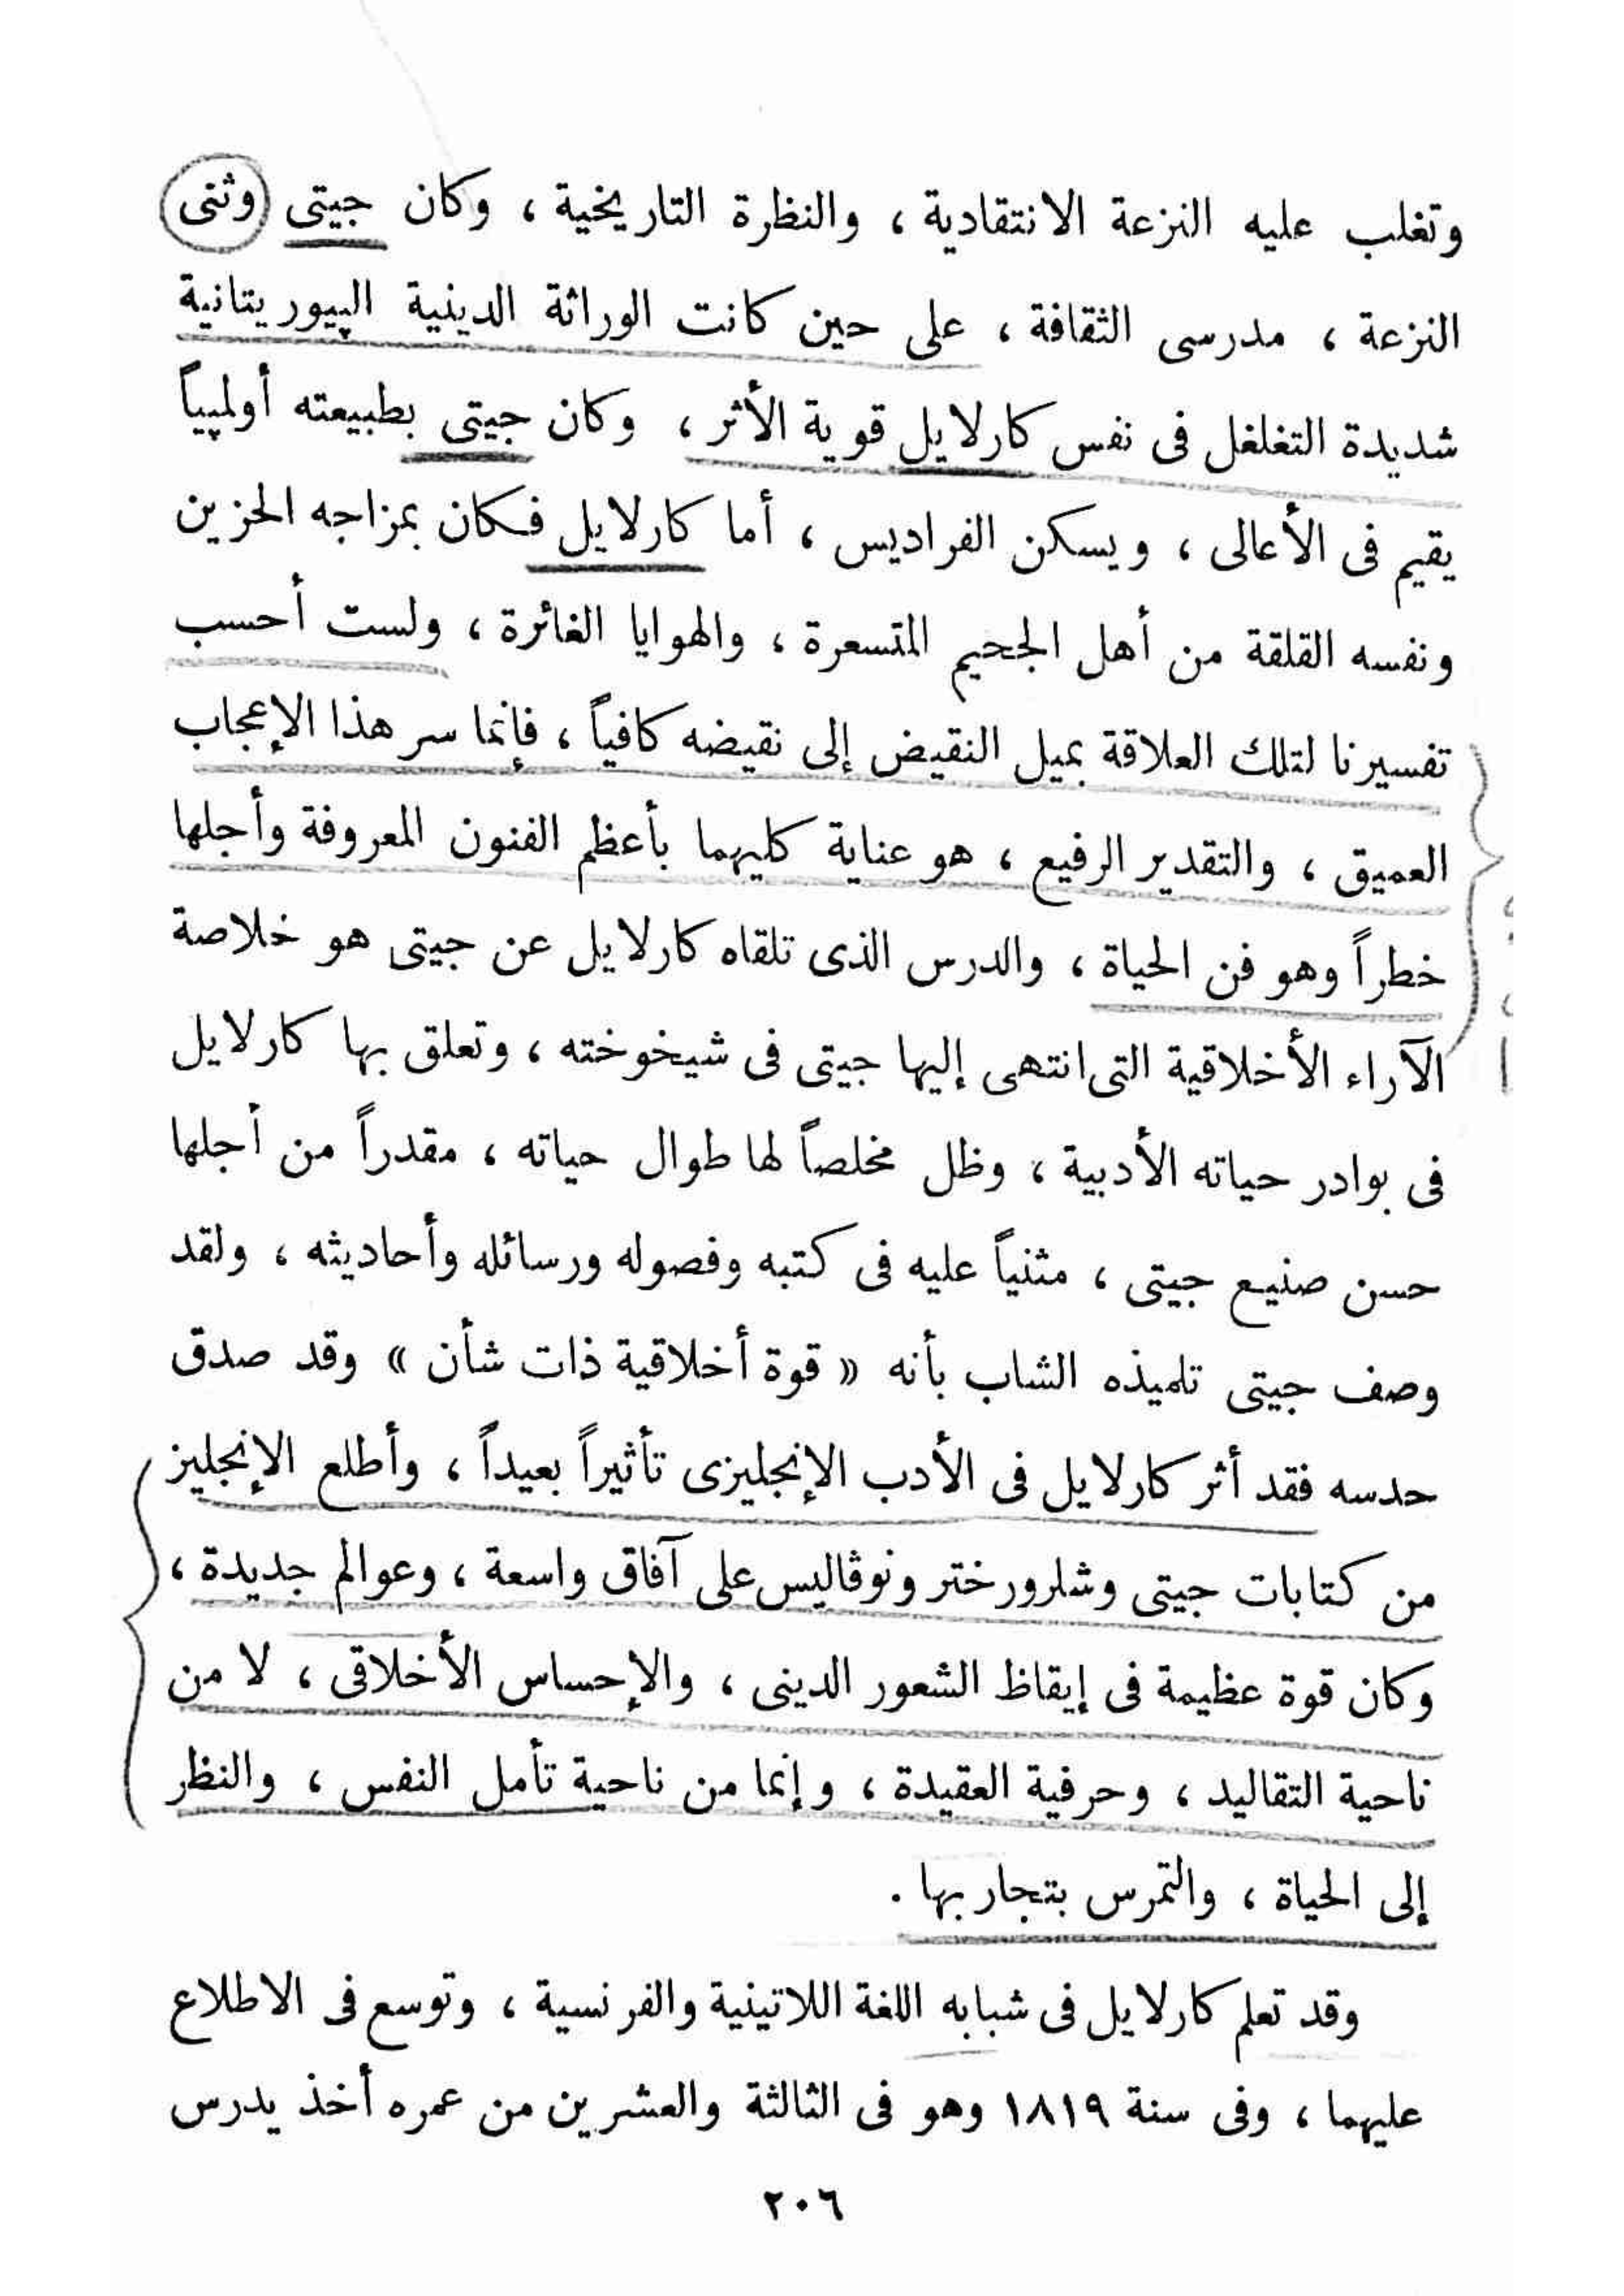 وتغلب عليه النزعة الانتقادية ، والنظرة التاريخية ، وكان جيتى وثنى
النزعة ، مدرسى الثقافة ، على حين كانت الوراثة الدينية الپيوريتانية
شديدة التغلغل فى نفس كارلايل قوية الأثر ، وكان جيتى بطبيعته أولمپياً
يقيم فى الأعالى ، ويسكن الفراديس ، أما كارلايل فكان بمزاجه الحزين
ونفسه القلقة من أهل الجحيم المتسعرة ، والهوايا الغائرة ، ولست أحسب
تفسيرنا لتلك العلاقة بميل النقيض إلى نقيضه كافياً ، فإنما سر هذا الإعجاب
العميق ، والتقدير الرفيع ، هو عناية كليهما بأعظم الفنون المعروفة وأجلها
خطراً وهو فن الحياة ، والدرس الذى تلقاه كارلايل عن جيتى هو خلاصة
الآراء الأخلاقية التى انتهى إليها جيتى فى شيخوخته ، وتعلق بها كارلايل
فى بوادر حياته الأدبية ، وظل مخلصاً لها طوال حياته ، مقدراً من أجلها
حسن صنيع جيتى ، مثنياً عليه فى كتبه وفصوله ورسائله وأحاديثه ، ولقد
وصف جيتى تلميذه الشاب بأنه « قوة أخلاقية ذات شأن » وقد صدق
حدسه فقد أثر كارلايل فى الأدب الإنجليزى تأثيراً بعيداً ، وأطلع الإنجليز
من كتابات جيتى وشلرورختر ونوڤاليس على آفاق واسعة ، وعوالم جديدة ،
وكان قوة عظيمة فى إيقاظ الشعور الدينى ، والإحساس الأخلاقى ، لا من
ناحية التقاليد ، وحرفية العقيدة ، وإنما من ناحية تأمل النفس ، والنظر
إلى الحياة ، والتمرس بتجاربها .
وقد تعلم كارلايل فى شبابه اللغة اللاتينية والفرنسية ، وتوسع فى الاطلاع
عليهما ، وفى سنة ١٨١٩ وهو فى الثالثة والعشرين من عمره أخذ يدرس
٢٠٦